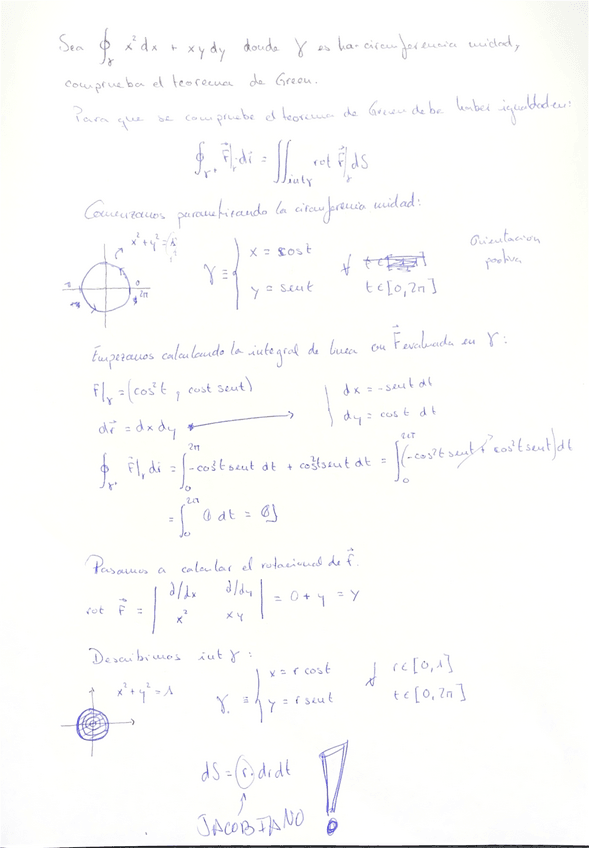 Sea ∮γ x² dx + xy dy donde γ es la circunferencia unidad,
comprueba el teorema de Green.
Para que se compruebe el teorema de Green debe haber igualdad en:
∮γ⁺ F⃗|γ dr⃗ = ∬int γ rot F⃗|γ dS
Comenzamos parametrizando la circunferencia unidad:
x² + y² = 1
γ ≡ { x = cos t
y = sen t
∀
t ∈ [0, 2π]
Orientación
positiva
π
0
2π
Empezamos calculando la integral de línea con F⃗ evaluada en γ:
F|γ = (cos²t, cost sent)
dr⃗ = dx dy
dx = -sent dt
dy = cos t dt
∮γ⁺ F⃗|γ dr⃗ = ∫₀^2π -cos²t sent dt + cos²t sent dt = ∫₀^2π (-cos²t sent + cos²t sent) dt
= ∫₀^2π 0 dt = 0
Pasamos a calcular el rotacional de F⃗.
rot F⃗ = | d/dx d/dy |
| x² xy | = 0 + y = y
Describimos int γ:
x² + y² = 1
γ ≡ { x = r cost
y = r sent
∀
r ∈ [0, 1]
t ∈ [0, 2π]
dS = r · dr dt
JACOBIANO !